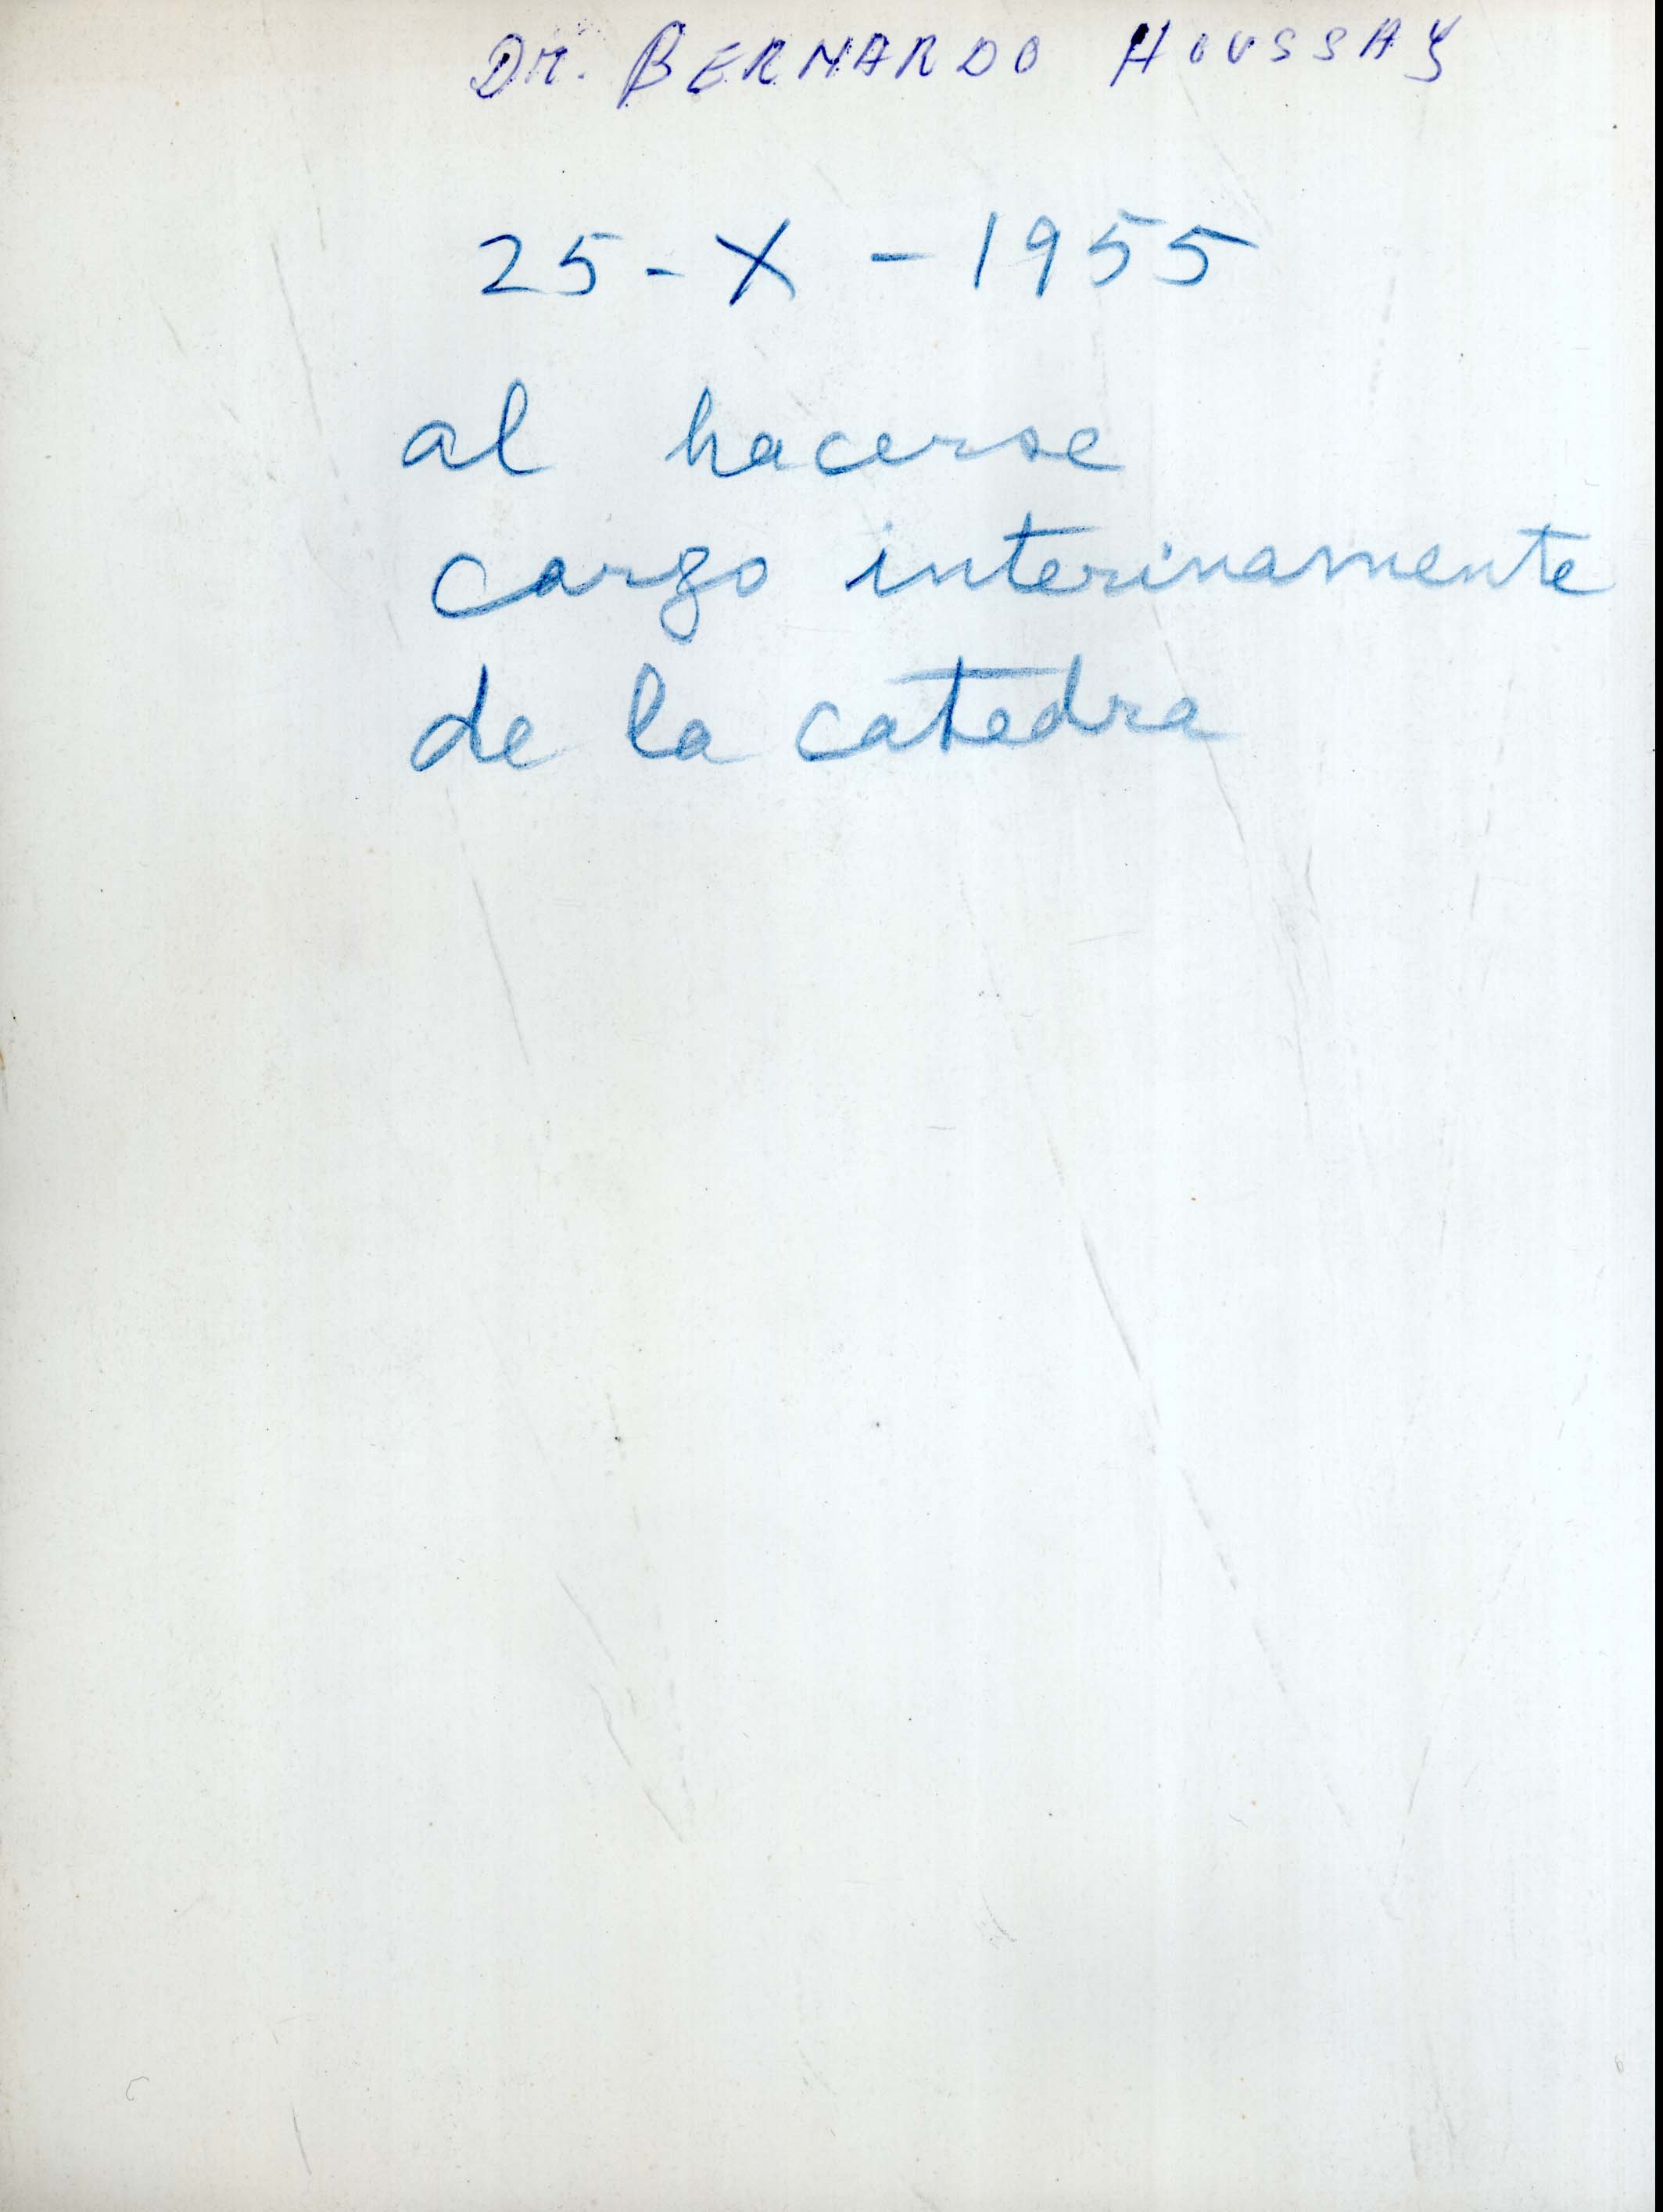 Dr. BERNARDO HOUSSAY
25-X-1955
al hacerse
cargo interinamente
de la catedra